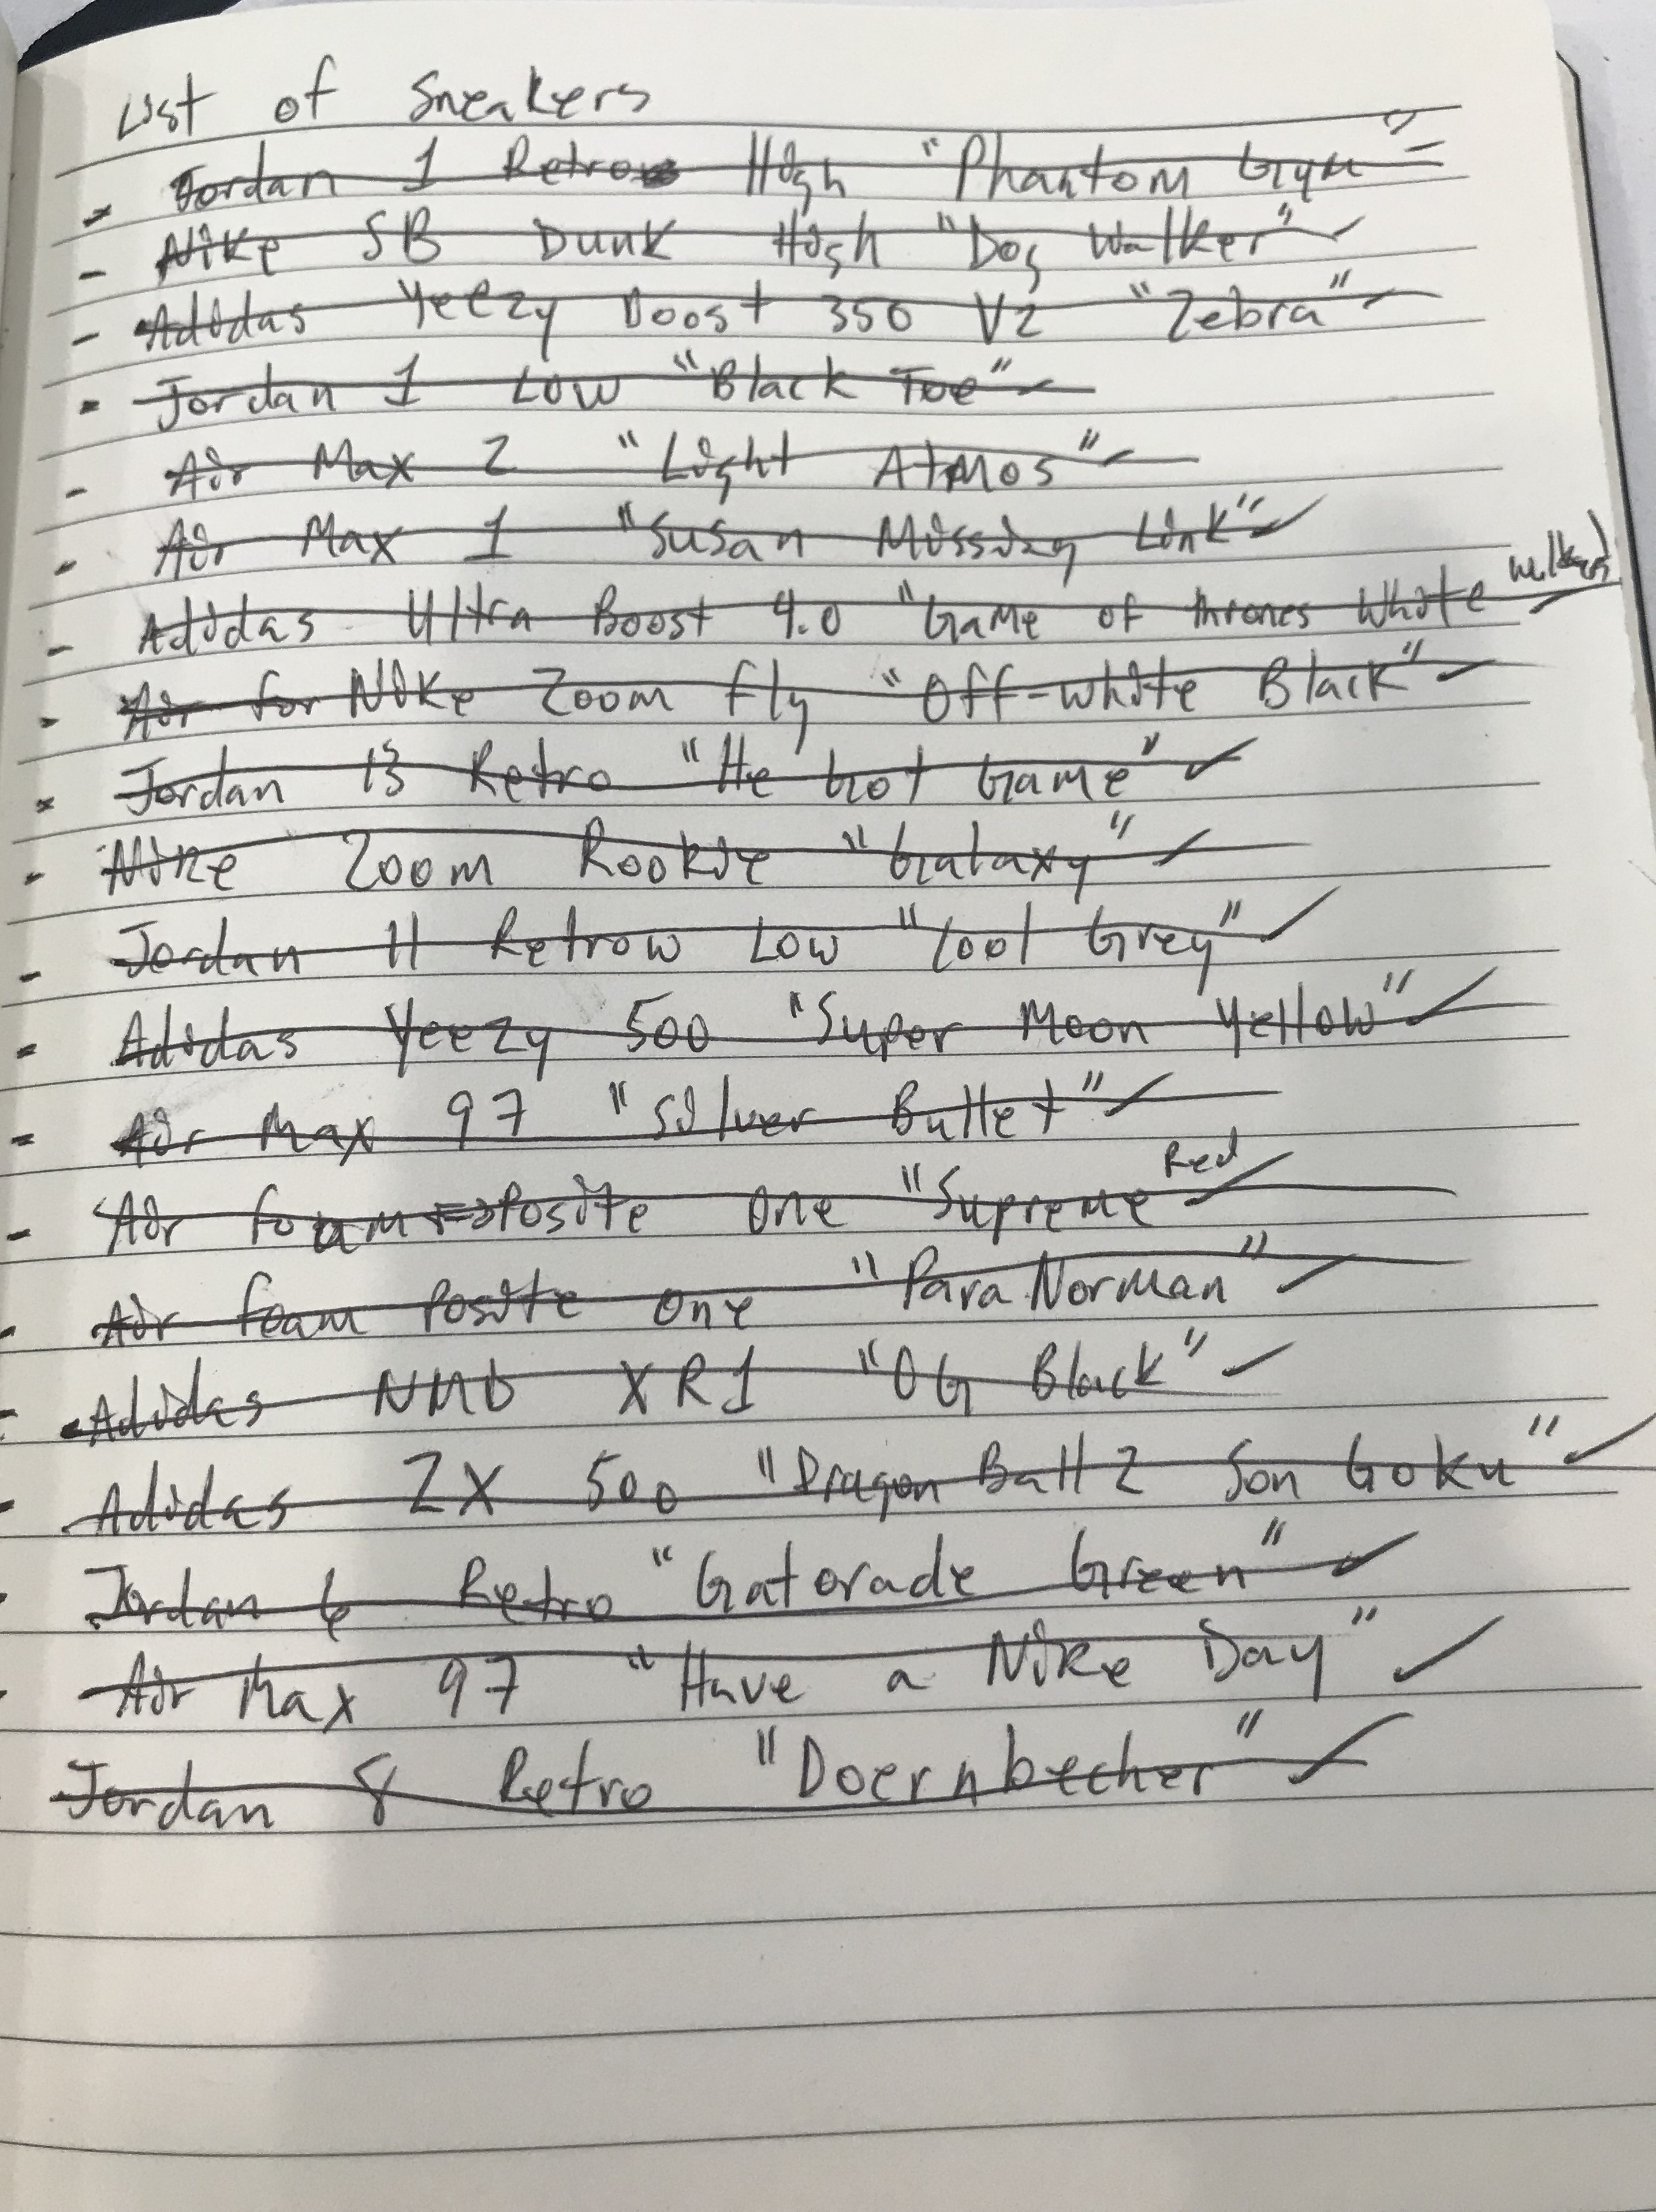 List of Sneakers
- Jordan 1 Retro High "Phantom Gym"
- Nike SB Dunk High "Dog Walker"
- Adidas Yeezy Boost 350 V2 "Zebra"
- Jordan 1 Low "Black Toe"
- Air Max 2 "Light Atmos"
- Air Max 1 "Susan Missing Link"
- Adidas Ultra Boost 4.0 "Game of thrones White walkers"
- Air for Nike Zoom fly "Off-white Black"
- Jordan 13 Retro "He Got Game"
- Nike Zoom Rookie "Galaxy"
- Jordan 11 Retrow Low "Cool Grey"
- Adidas Yeezy 500 "Super Moon Yellow"
- Air Max 97 "Silver Bullet"
- Air foam Posite One "Supreme Red
- Air foam Posite One "ParaNorman"
- Adidas NMD XR1 "OG Black"
- Adidas ZX 500 "Dragon Ball Z Son Goku"
- Jordan 6 Retro "Gatorade Green"
- Air Max 97 "Have a Nike Day"
- Jordan 8 Retro "Doernbecher"